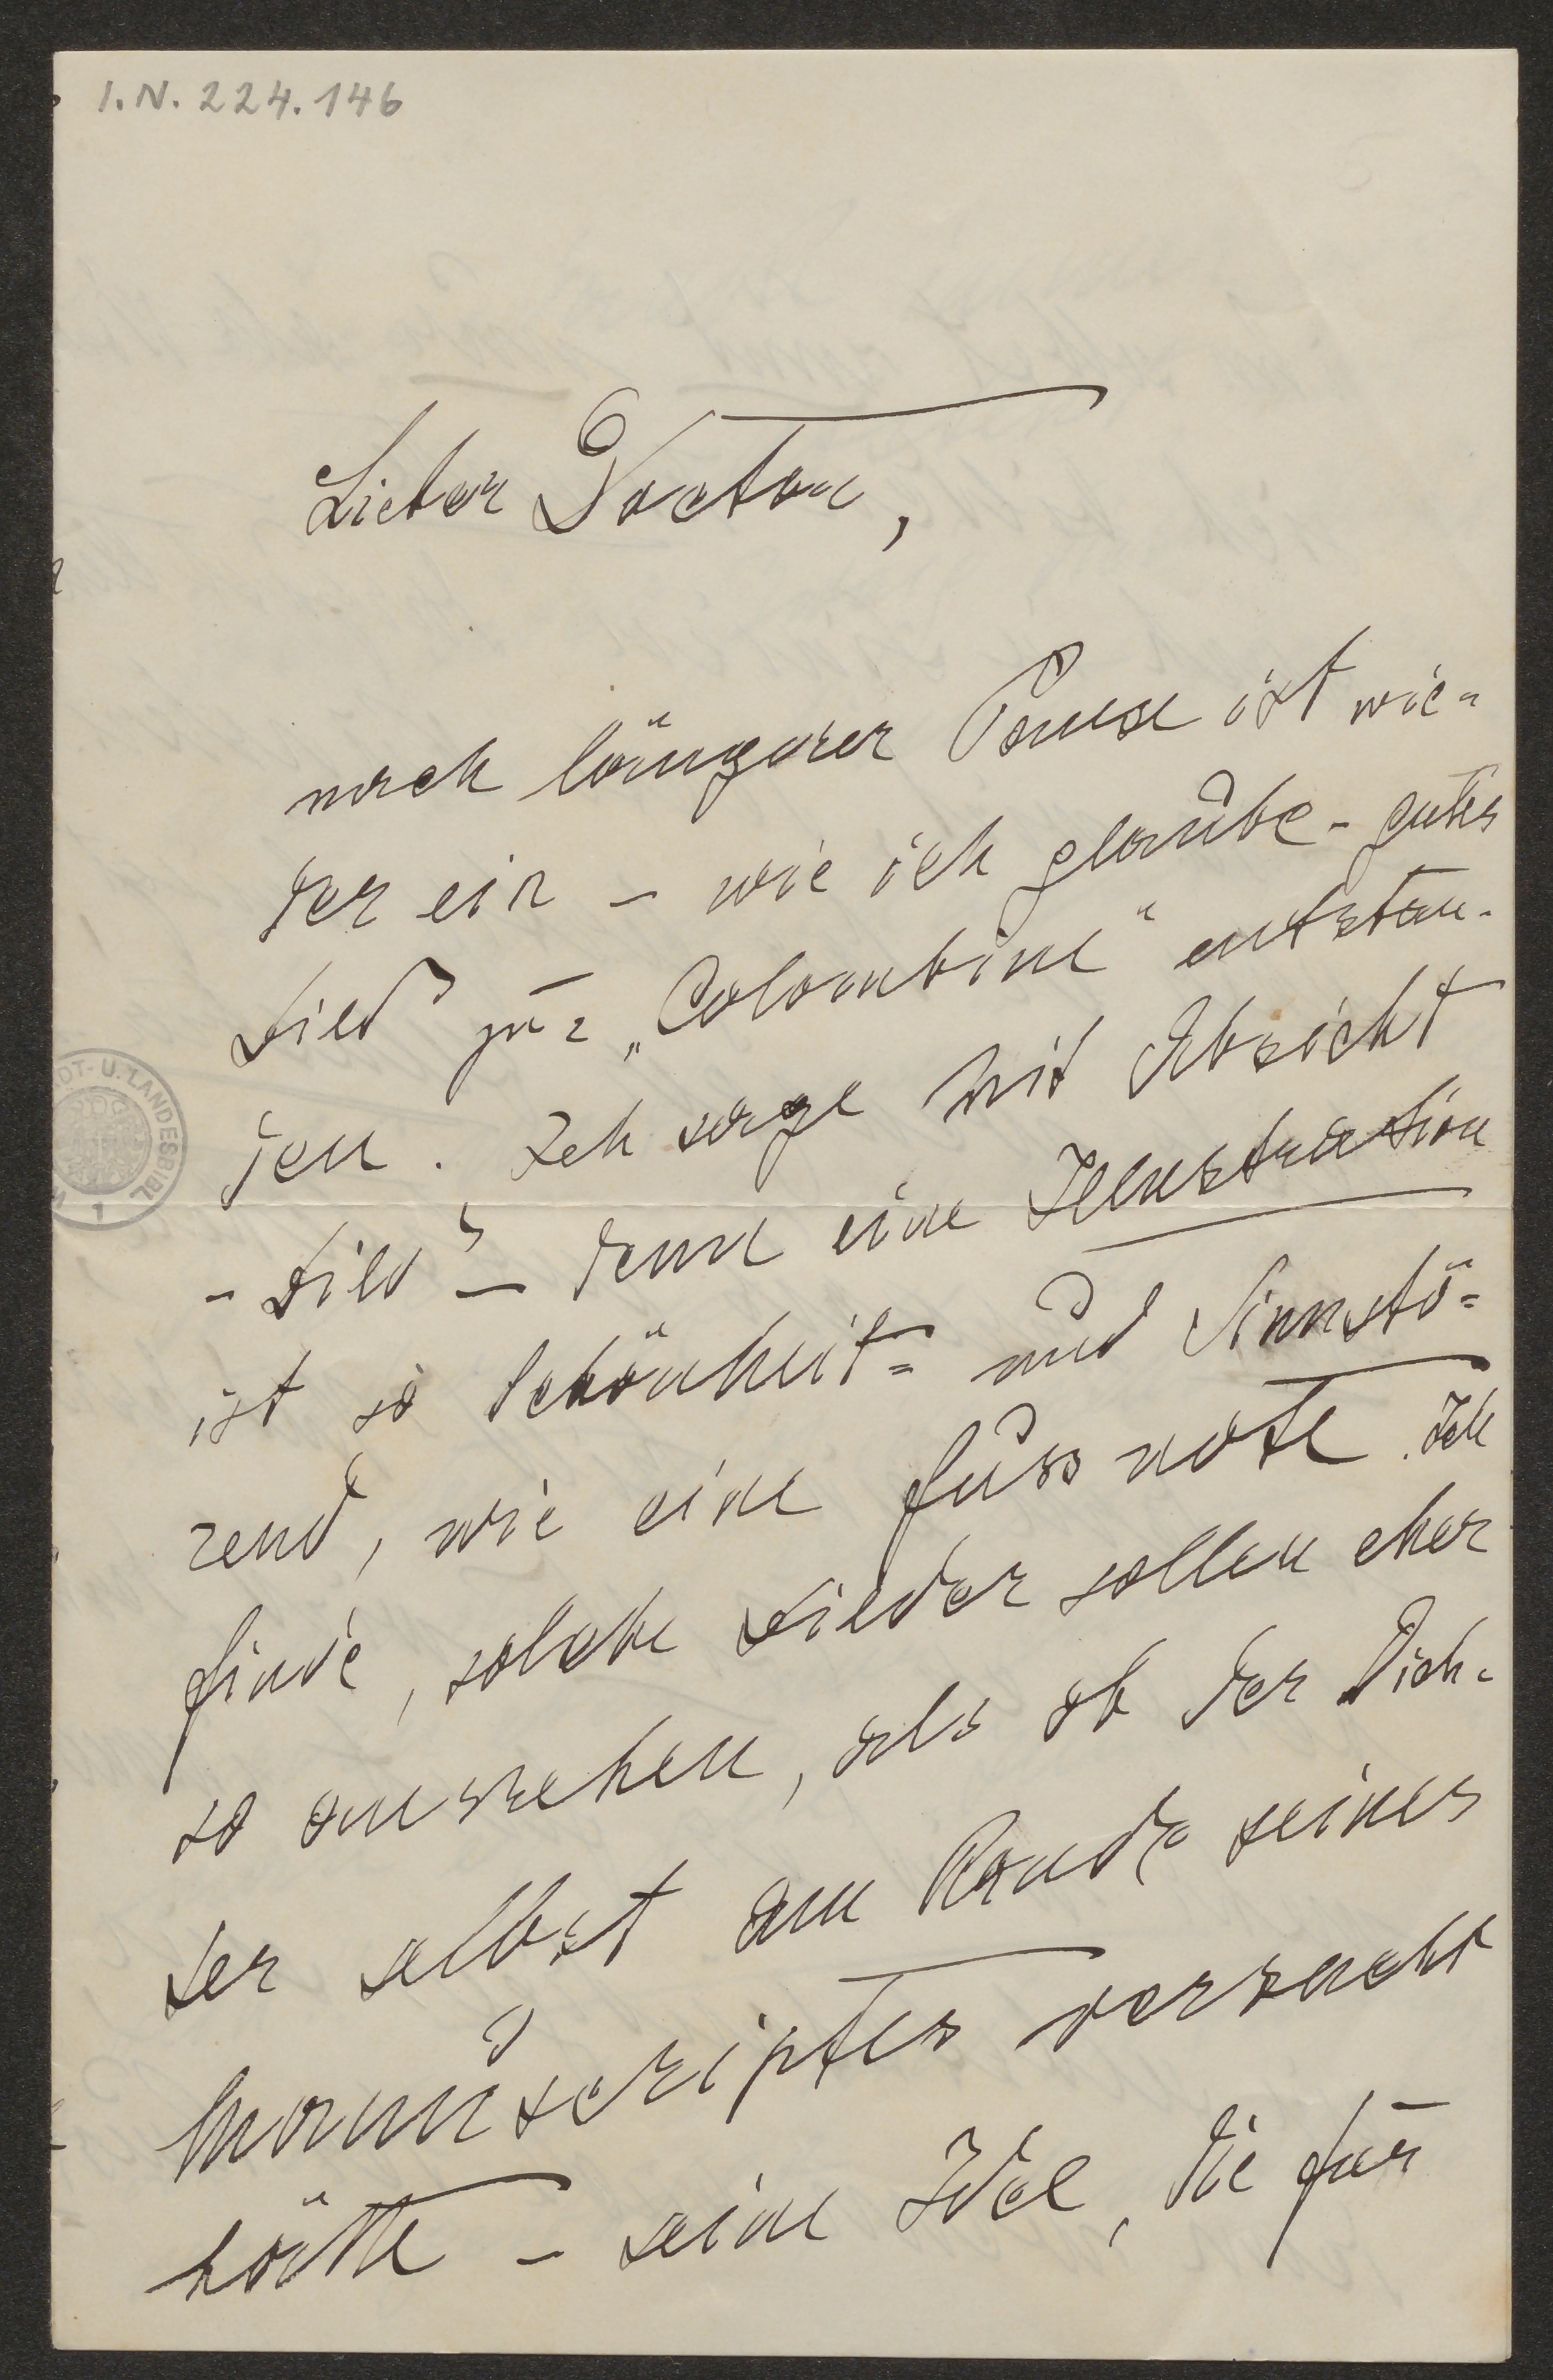 I.N. 224.146
Lieber Doctor,
nach längerer Pause ist wie-
der ein – wie ich glaube – gutes
Bild zu „Colombine“ entstan-
den. Ich sage mit Absicht
– Bild – denn eine Illustration
ist so Schönheit= und Sinnstö=
rend, wie eine Fussnote. Ich
finde, solche Bilder sollen eher
so aussehen, als ob der Dich-
ter selbst am Rande seines
Manuscriptes versucht
hätte – seine Idee, die für
DT- U. LANDESBIBL